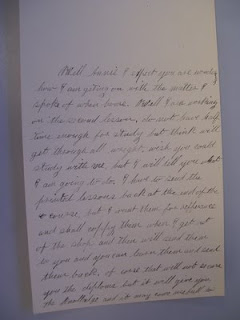 Well Annie I expect you are wondering
how I am getting on with the matter I
spoke of when home. Well I am working
on the second lesson, do not have half
time enough for study but think will
get through all right, wish you could
study with me, but I will tell you what
I am going to do, I have to send the
printed lessons back at the end of the
course, but I want them for reference
and shall copy them when I get out
of the and then will send them
to you and you can learn them and send
them back, of course that will not secure
you the diploma but it will give you
the and it may come